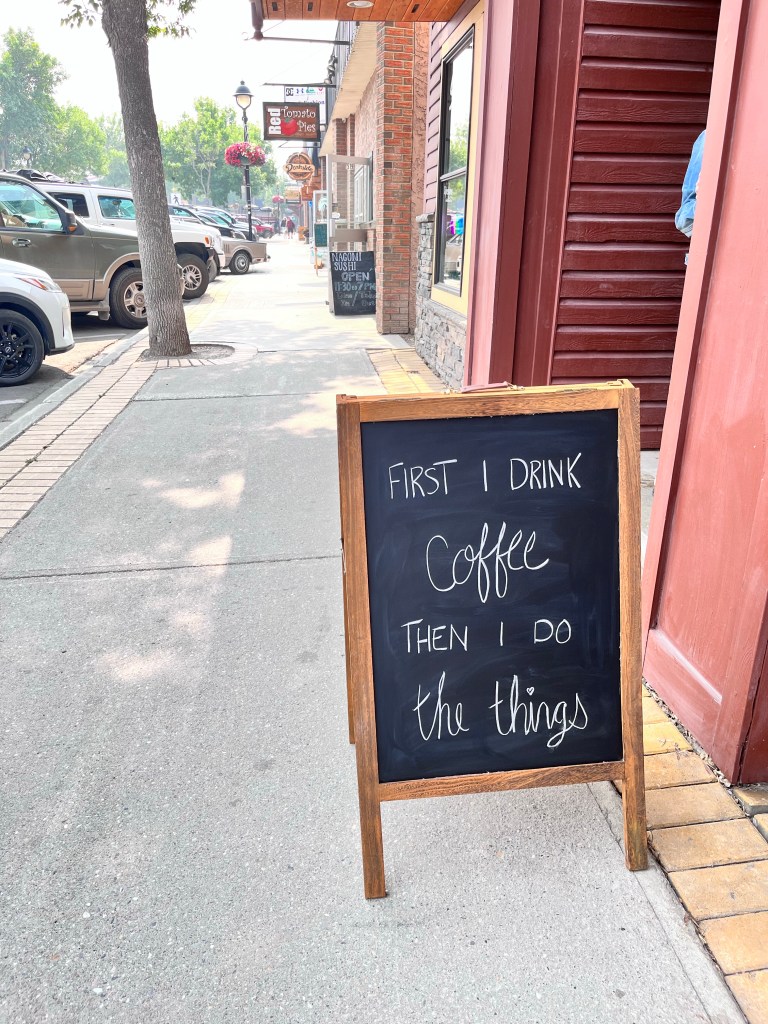 Red
Tomato
Pies
NAGOMI
SUSHI
OPEN
FIRST I DRINK
Coffee
THEN I DO
the things